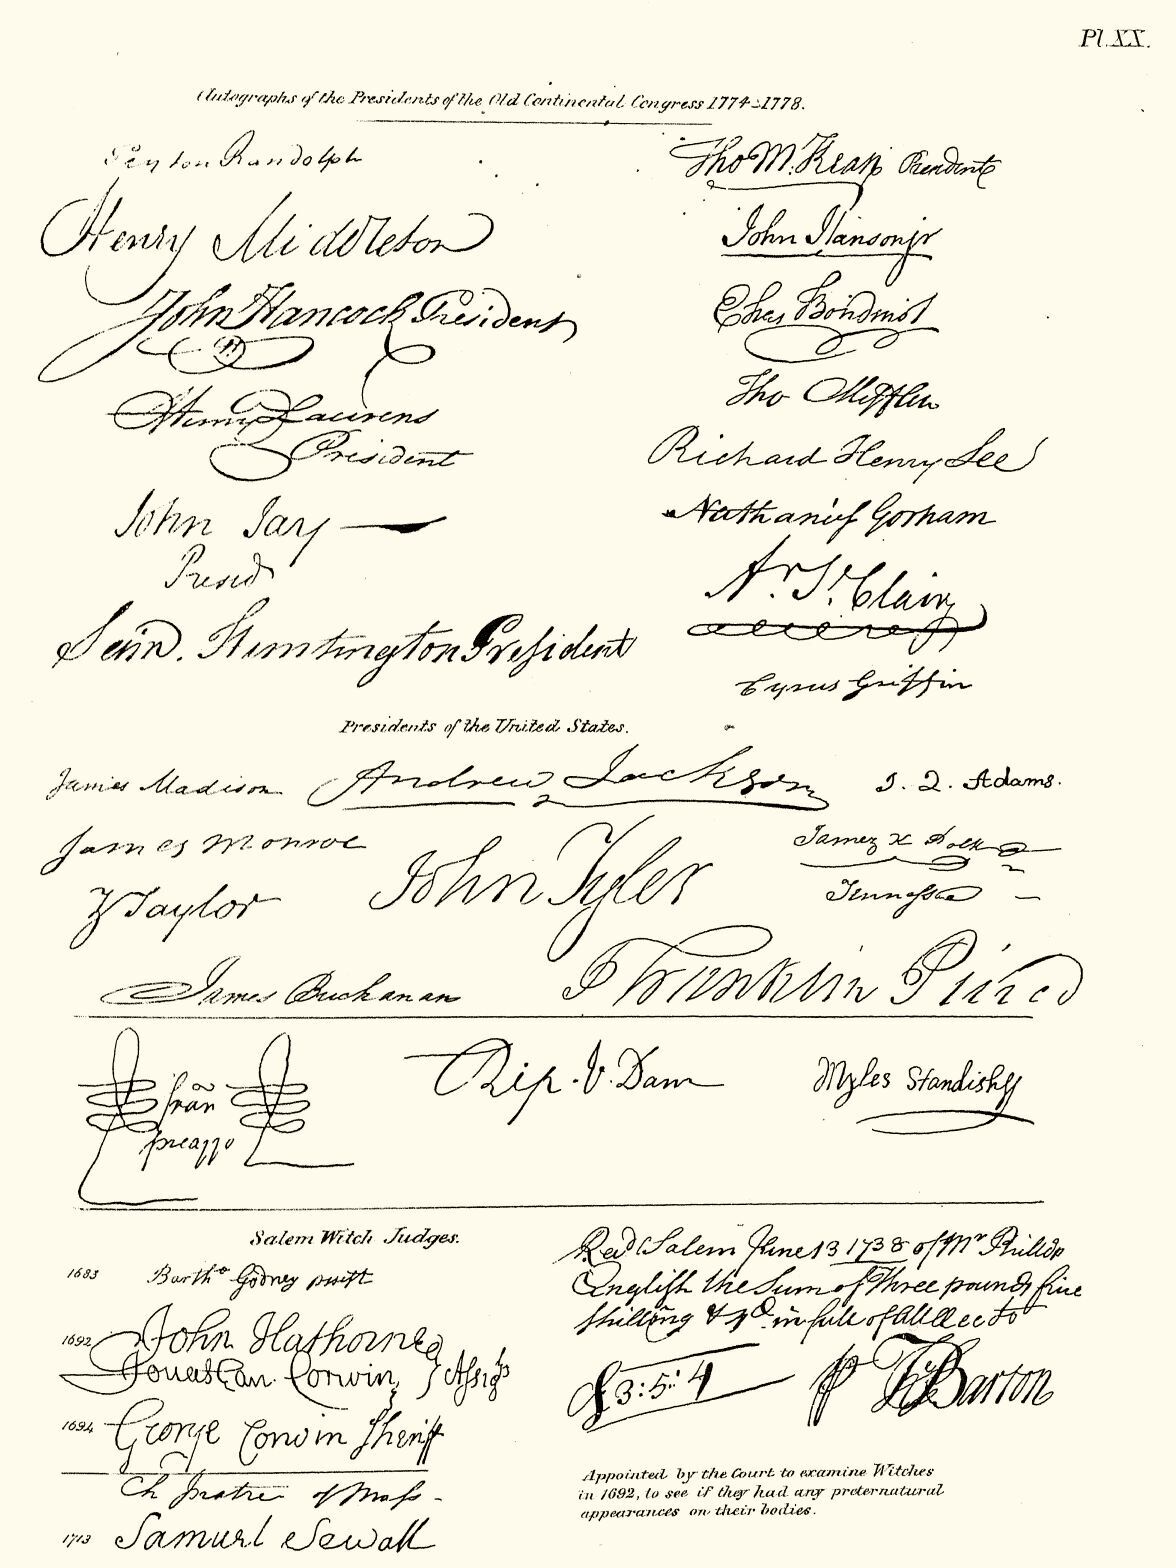 Pl. XX.
Autographs of the Presidents of the Old Continental Congress 1774-1778.
Peyton Randolph
Henry Middleton
John Hancock President
Henry Laurens
President
John Jay
Presid
Sam. Huntington President
Tho M. Kean President
John Hanson jr
Elias Boudinot
Tho Mifflin
Richard Henry Lee
Nathaniel Gorham
Ar. St. Clair
Cyrus Griffin
Presidents of the United States.
James Madison Andrew Jackson J. Q. Adams.
James Monroe John Tyler James K Polk
Z Taylor Tennessee
James Buchanan Franklin Pierce
frañ
picarro
Rip. V. Dam
Myles Standish
Salem Witch Judges.
1683 Bartho Gedney
1692 John Hathorne
Jonathan Corwin } Assists
1694 George Corwin Sheriff
Ch Justice of Mass -
1713 Samuel Sewall
Recd Salem June 13 1738 of Mr Phillip
English the Sum of three pounds five
shilling & 4d in full of all accts
£3:5:4 Barton
Appointed by the Court to examine Witches
in 1692, to see if they had any preternatural
appearances on their bodies.